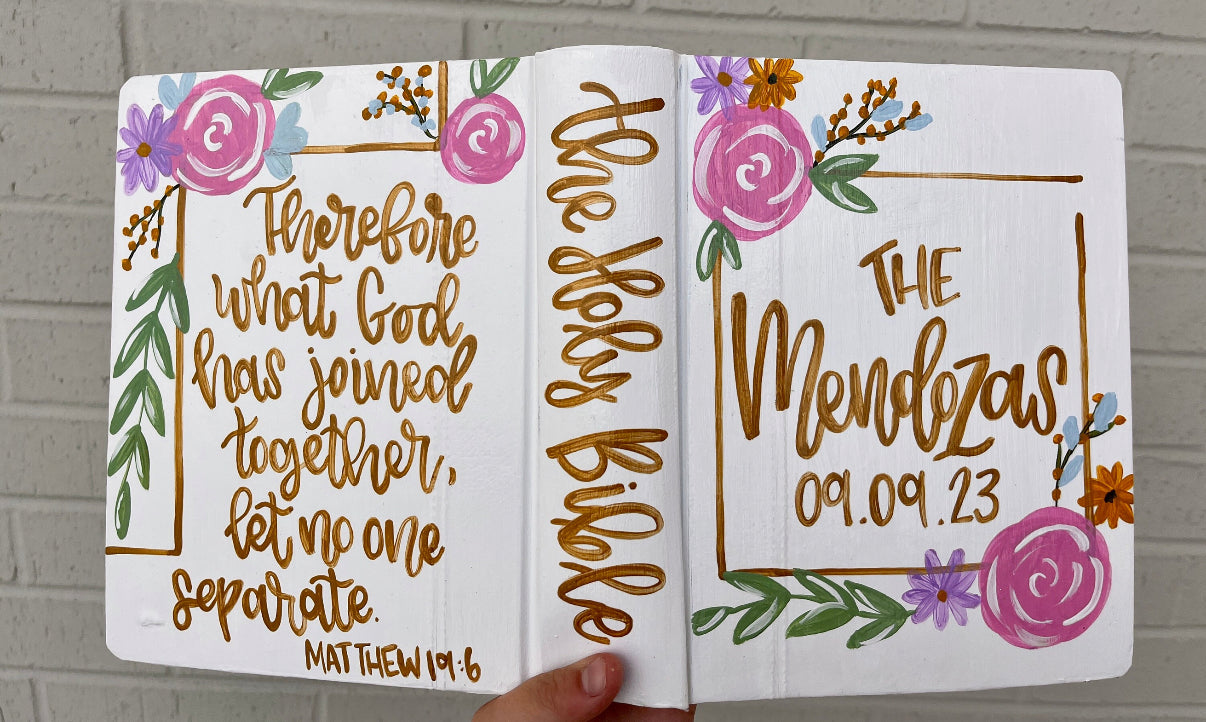 Therefore
what God
has joined
together,
let no one
separate.
MATTHEW 19:6
the Holy Bible
THE
Mendozas
09.09.23